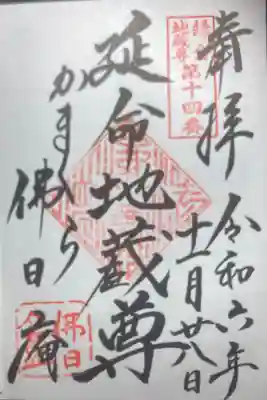 奉拝
令和六年
十一月廿八日
第十四番
延命地蔵尊
かまくら
佛日庵
佛日